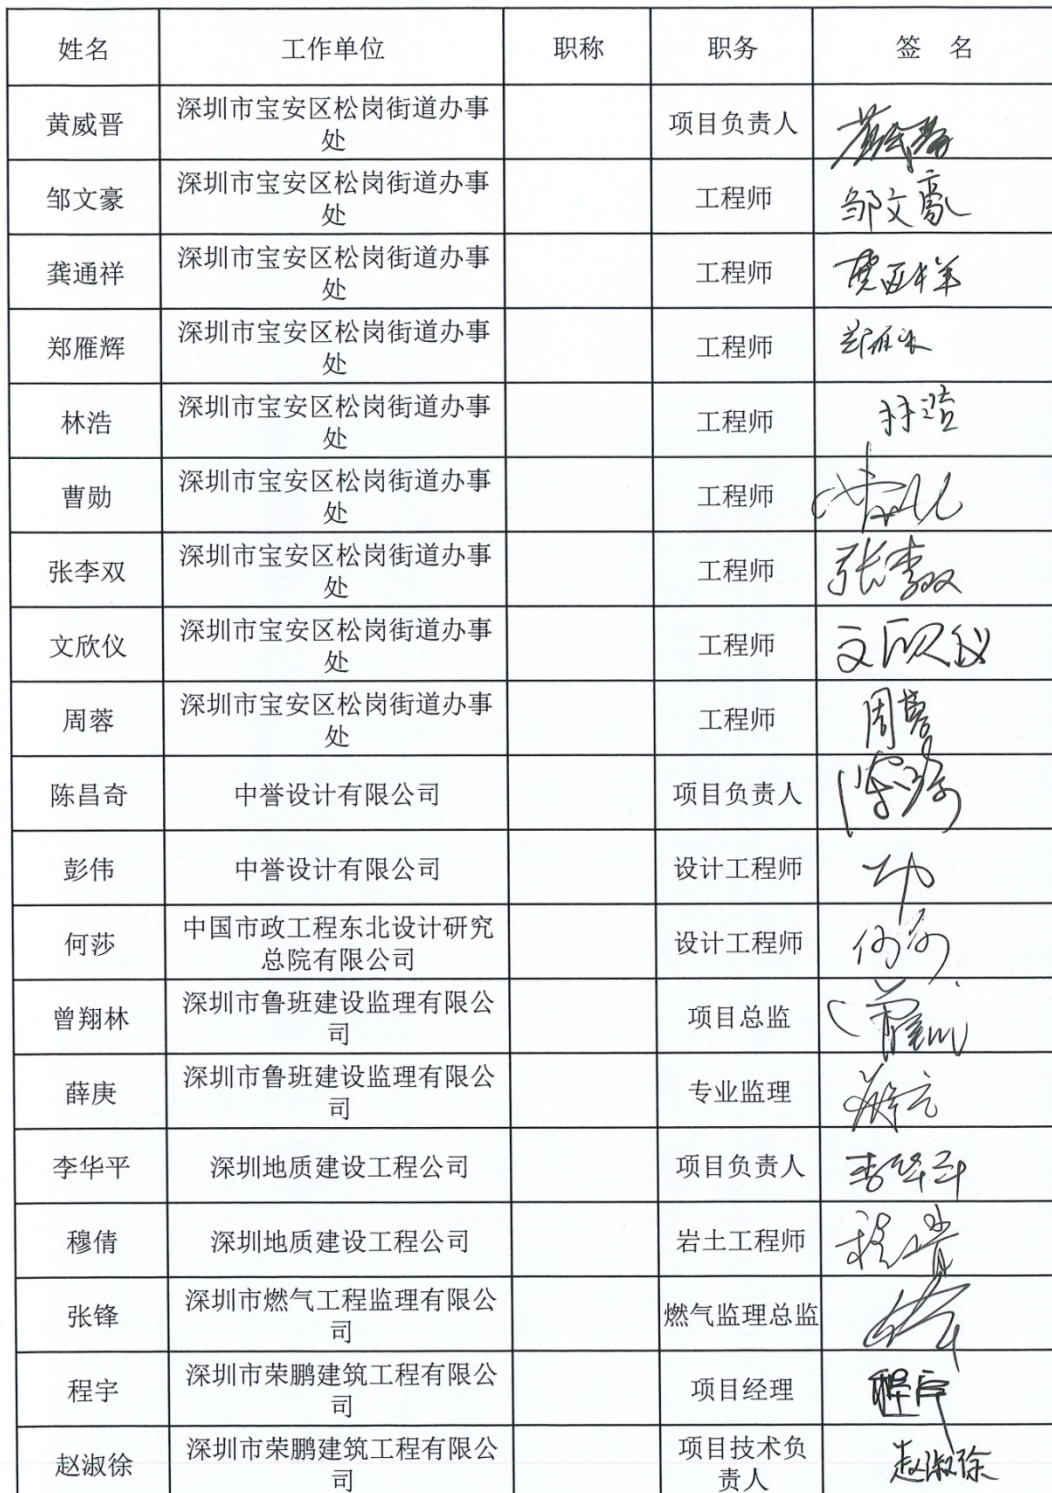 姓名 工作单位 职称 职务 签 名
黄威晋 深圳市宝安区松岗街道办事 项目负责人
处
邹文豪 深圳市宝安区松岗街道办事 工程师 邹文豪
处
龚通祥 深圳市宝安区松岗街道办事 工程师
处
郑雁辉 深圳市宝安区松岗街道办事 工程师
处
林浩 深圳市宝安区松岗街道办事 工程师 林浩
处
曹勋 深圳市宝安区松岗街道办事 工程师
处
张李双 深圳市宝安区松岗街道办事 工程师 张李双
处
文欣仪 深圳市宝安区松岗街道办事 工程师 文欣仪
处
周蓉 深圳市宝安区松岗街道办事 工程师 周蓉
处
陈昌奇 中誉设计有限公司 项目负责人
彭伟 中誉设计有限公司 设计工程师
何莎 中国市政工程东北设计研究 设计工程师 何莎
总院有限公司
曾翔林 深圳市鲁班建设监理有限公 项目总监
司
薛庚 深圳市鲁班建设监理有限公 专业监理
司
李华平 深圳地质建设工程公司 项目负责人 李华平
穆倩 深圳地质建设工程公司 岩土工程师
张锋 深圳市燃气工程监理有限公 燃气监理总监
司
程宇 深圳市荣鹏建筑工程有限公 项目经理 程宇
司
赵淑徐 深圳市荣鹏建筑工程有限公 项目技术负 赵淑徐
司 责人